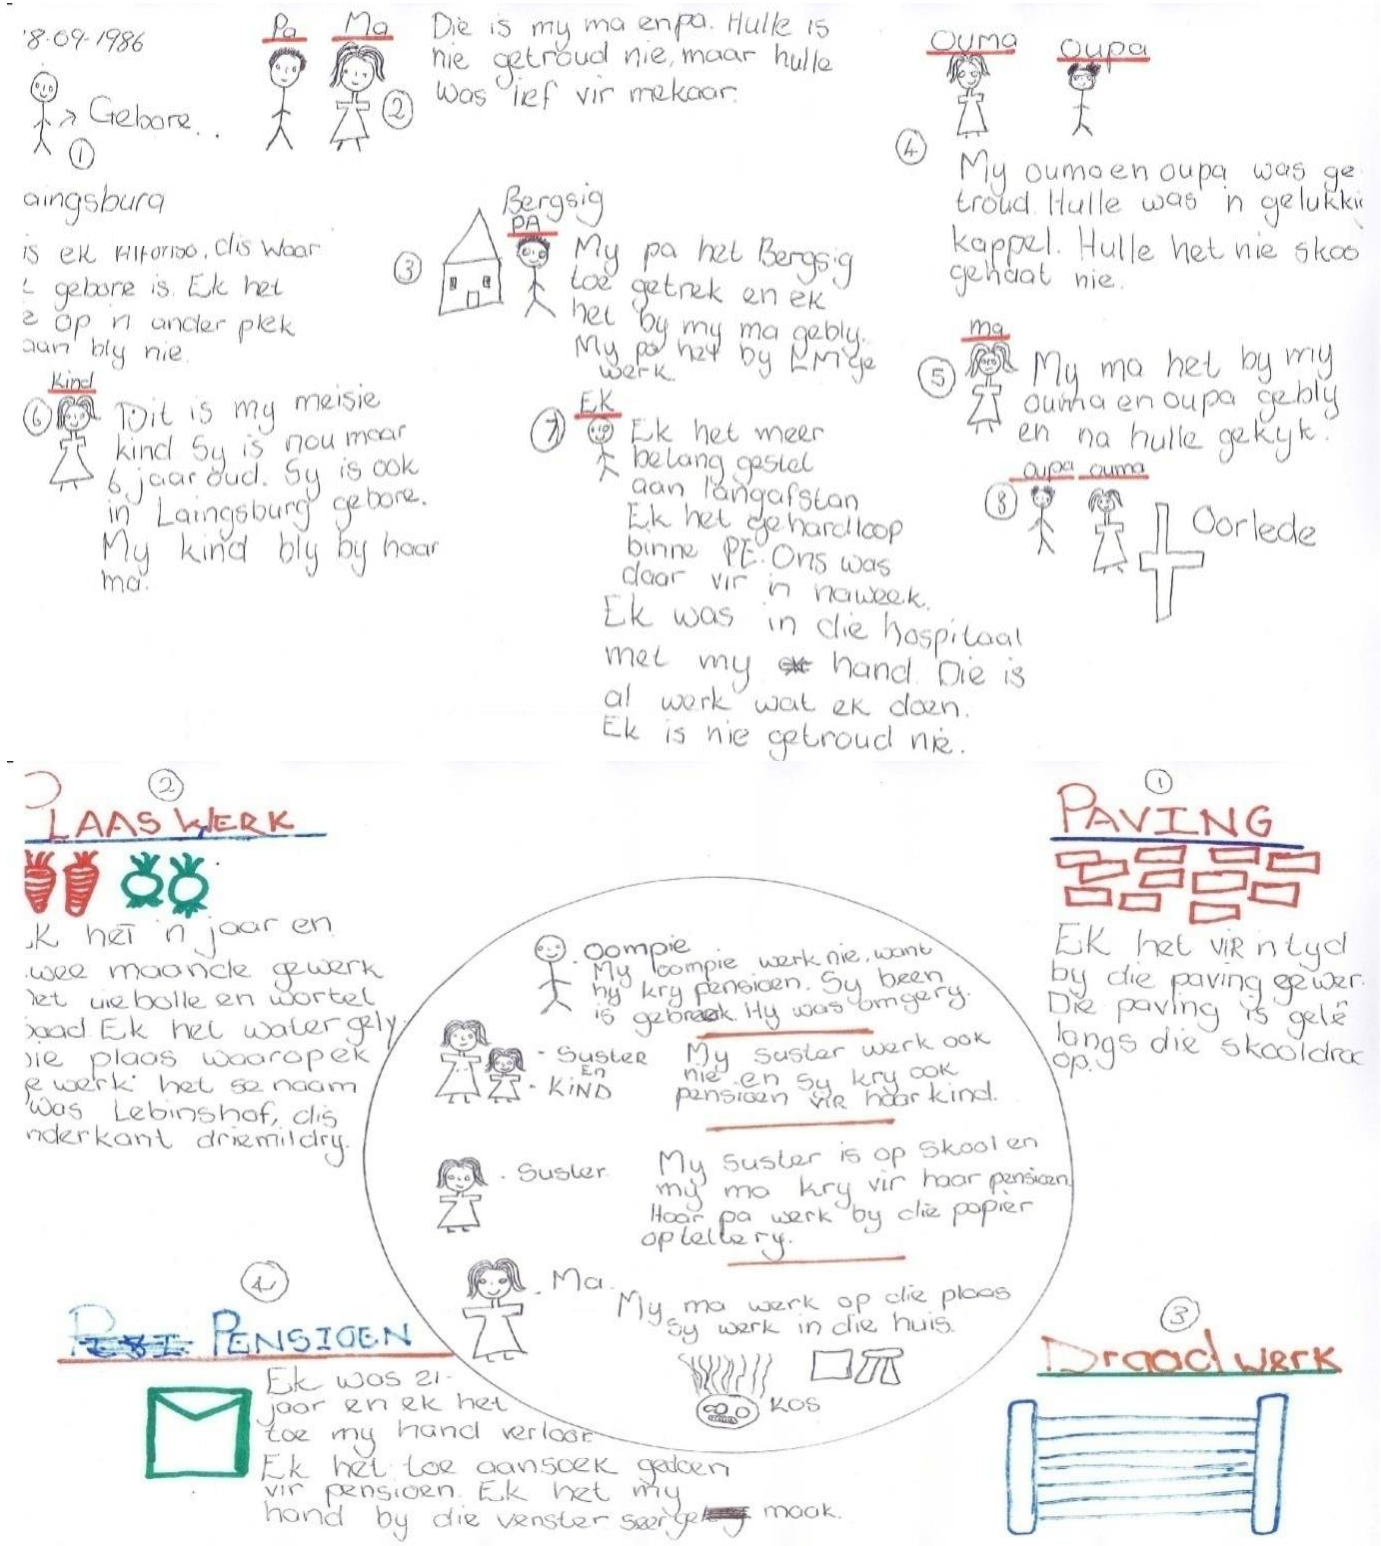 8-09-1986
Gebore...
1
aingsburg
is ek Alfonso, dis waar
gebore is. Ek het
e op 'n ander plek
aan bly nie.
Pa Ma
2
Die is my ma en pa. Hulle is
nie getroud nie, maar hulle
was lief vir mekaar.
3
Bergsig
PA
My pa het Bergsig
toe getrek en ek
het by my ma gebly.
My pa het by LM ge
werk.
Ouma oupa
4
My ouma en oupa was ge
troud. Hulle was 'n gelukki
kappel. Hulle het nie skoo
gehaat nie.
ma
5
My ma het by my
ouma en oupa gebly
en na hulle gekyk.
Kind
6
Dit is my meisie
kind Sy is nou maar
6 jaar oud. Sy is ook
in Laingsburg gebore.
My kind bly by haar
ma.
EK
7
Ek het meer
belang gestel
aan langafstan
Ek het gehardloop
binne PE. Ons was
daar vir 'n naweek.
Ek was in die hospitaal
met my hand. Die is
al werk wat ek doen.
Ek is nie getroud nie.
oupa ouma
8
Oorlede
2
PLAAS WERK
K het 'n jaar en
wee maande gewerk
et uiebolle en wortel
saad Ek het water gely
ie plaas waarop ek
e werk het se naam
was Lebinshof, dis
nderkant driemildry.
1
PAVING
EK het VIR 'n tyd
by die paving gewer.
Die paving is gelê
langs die skooldra
op.
Oompie
My oompie werk nie, want
hy kry pensioen. Sy been
is gebreek. Hy was omgery.
- SUSTER
EN
- KIND
My suster werk ook
nie en sy kry ook
pensioen VIR haar kind.
- Suster
My suster is op skool en
my ma kry vir haar pensioen.
Haar pa werk by die papier
optellery.
- Ma
My ma werk op die plaas
sy werk in die huis.
KOS
4
PENSIOEN
Ek was 21-
jaar en ek het
toe my hand verloor.
Ek het toe aansoek gedoen
vir pensioen. Ek het my
hand by die venster seer ge maak.
3
Draad werk